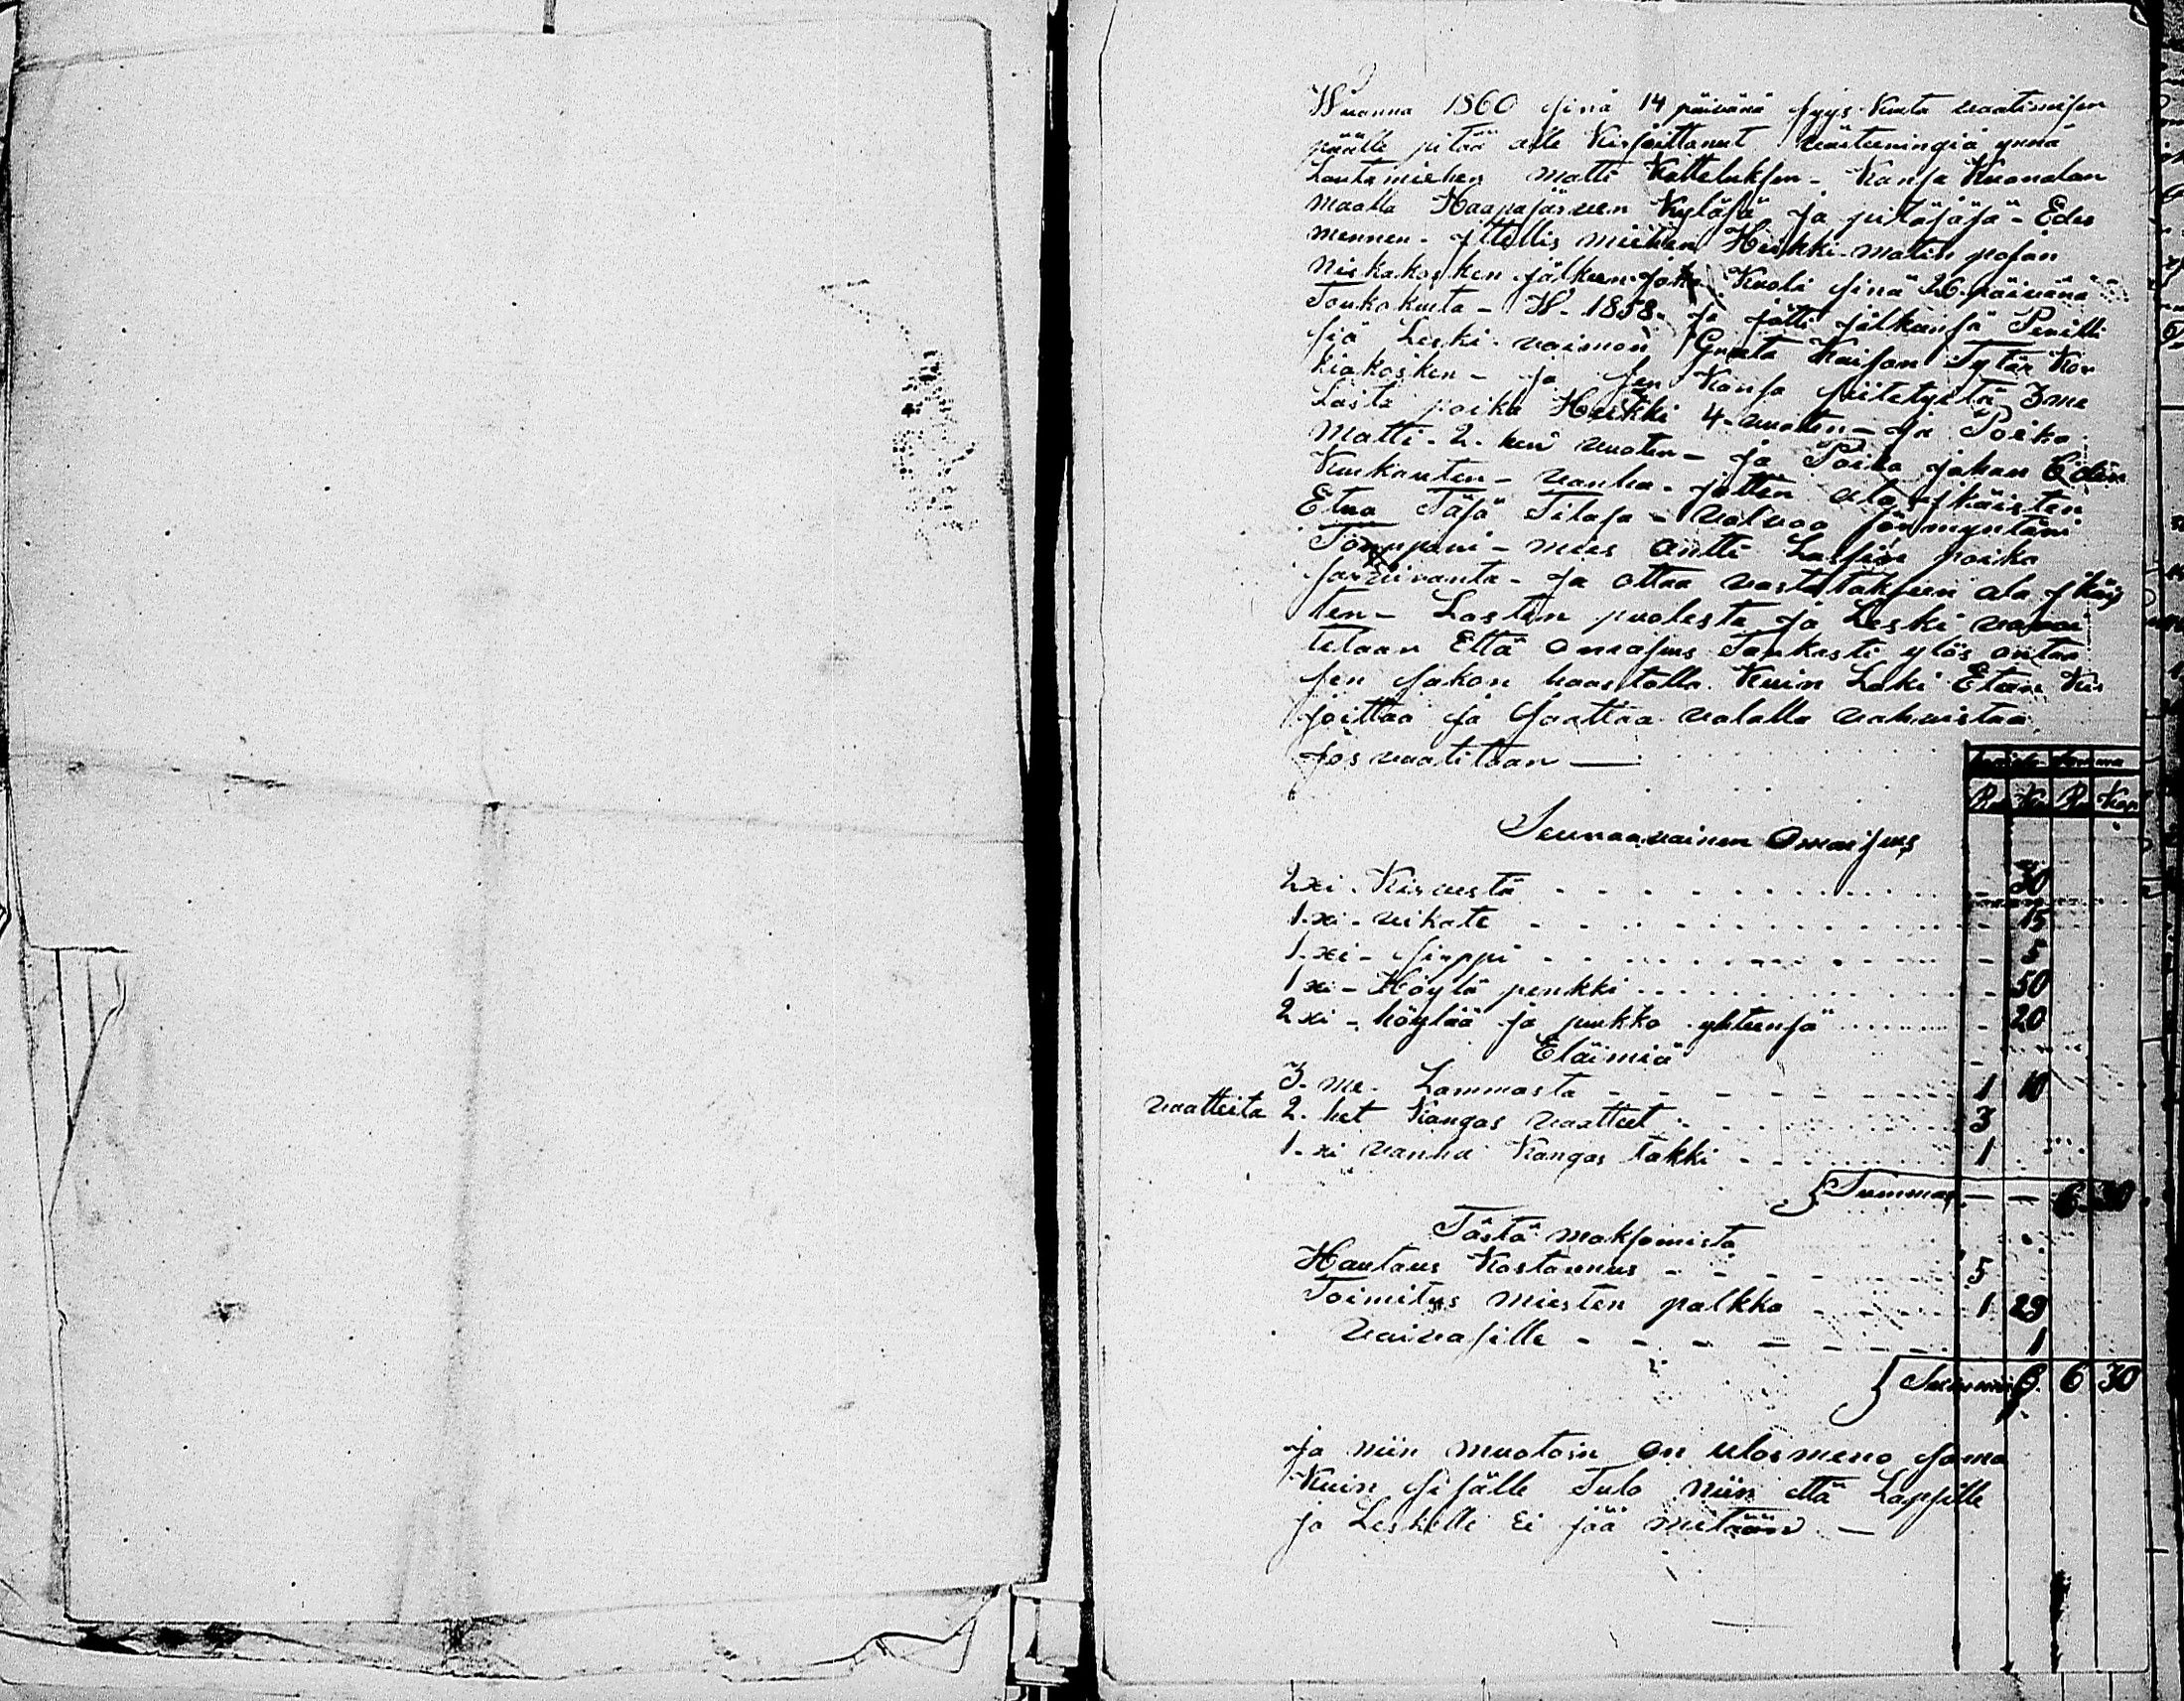 Wuonna 1860 sinä 14 päivänä syys Kuuta vaatimisen
päälle pitää alle Kirjoittanut värteeningiä ynnä
Lautamiehen Matti Katteluksen - Kansa Kuonalan
maalla Haapajärven Kyläsä ja pitäjäsä - Edes
mennen - ittellis miehen Heikki Matin pojan
Niskakosken jälkeen joka Kuoli sinä 26 päivänä
Toukokuuta - W - 1858 - ja jätti jälkeensä Perilli
siä Leski vaimon Greeta Kaisan Tytär Kor
kiakosken - ja sen Kansa siitetyitä 3me
Lasta poika Heikki 4 vuoten - ja Poika
Matti - 2 - hen vuoten - ja Poika Johan
Kuukauten - vanha - joitten ala ikäisten
Etua Täsä Tilasa - valvoo förmyntäri
Torppari - mies Antti Lassin poika
Järviranta - ja ottaa vasta takseen ala ikäis
ten - Lasten puolesta ja Leski varoi
tetaan Että omaisuus Tarkasti ylös antaa
sen jakon haastolla Kuin Laki Eteen Kir
joittaa ja saattaa valalla vahvistaa
jos vaatitaan —
Summa
Ru Ko Ru Kop
Seuraavainen Omaisuus
2xi - Kirvestä - - - 30
1-xi - vikate - - - 15
1-xi - sirppi - - - 5
1xi - Höylä penkki - - - 50
2xi - höylää ja puukko yhteensä - - - 20
Eläimiä
3-me - Lammasta - - - 1 10
vaatteita 2-het Kangas vaatteet - - - 3
1-xi vanha Kangas takki - - - 1
Summa — — 6 30
Tästä maksamista
Hautaus Kostannus - - - 5
Toimitus miesten palkka - - - 1 29
vaivasille - - - 1
Summa 6 30
Ja niin muotoin on ulosmeno sama
Kuin sisälle Tulo niin että Lapsille
ja Leskelle Ei jää mitään —